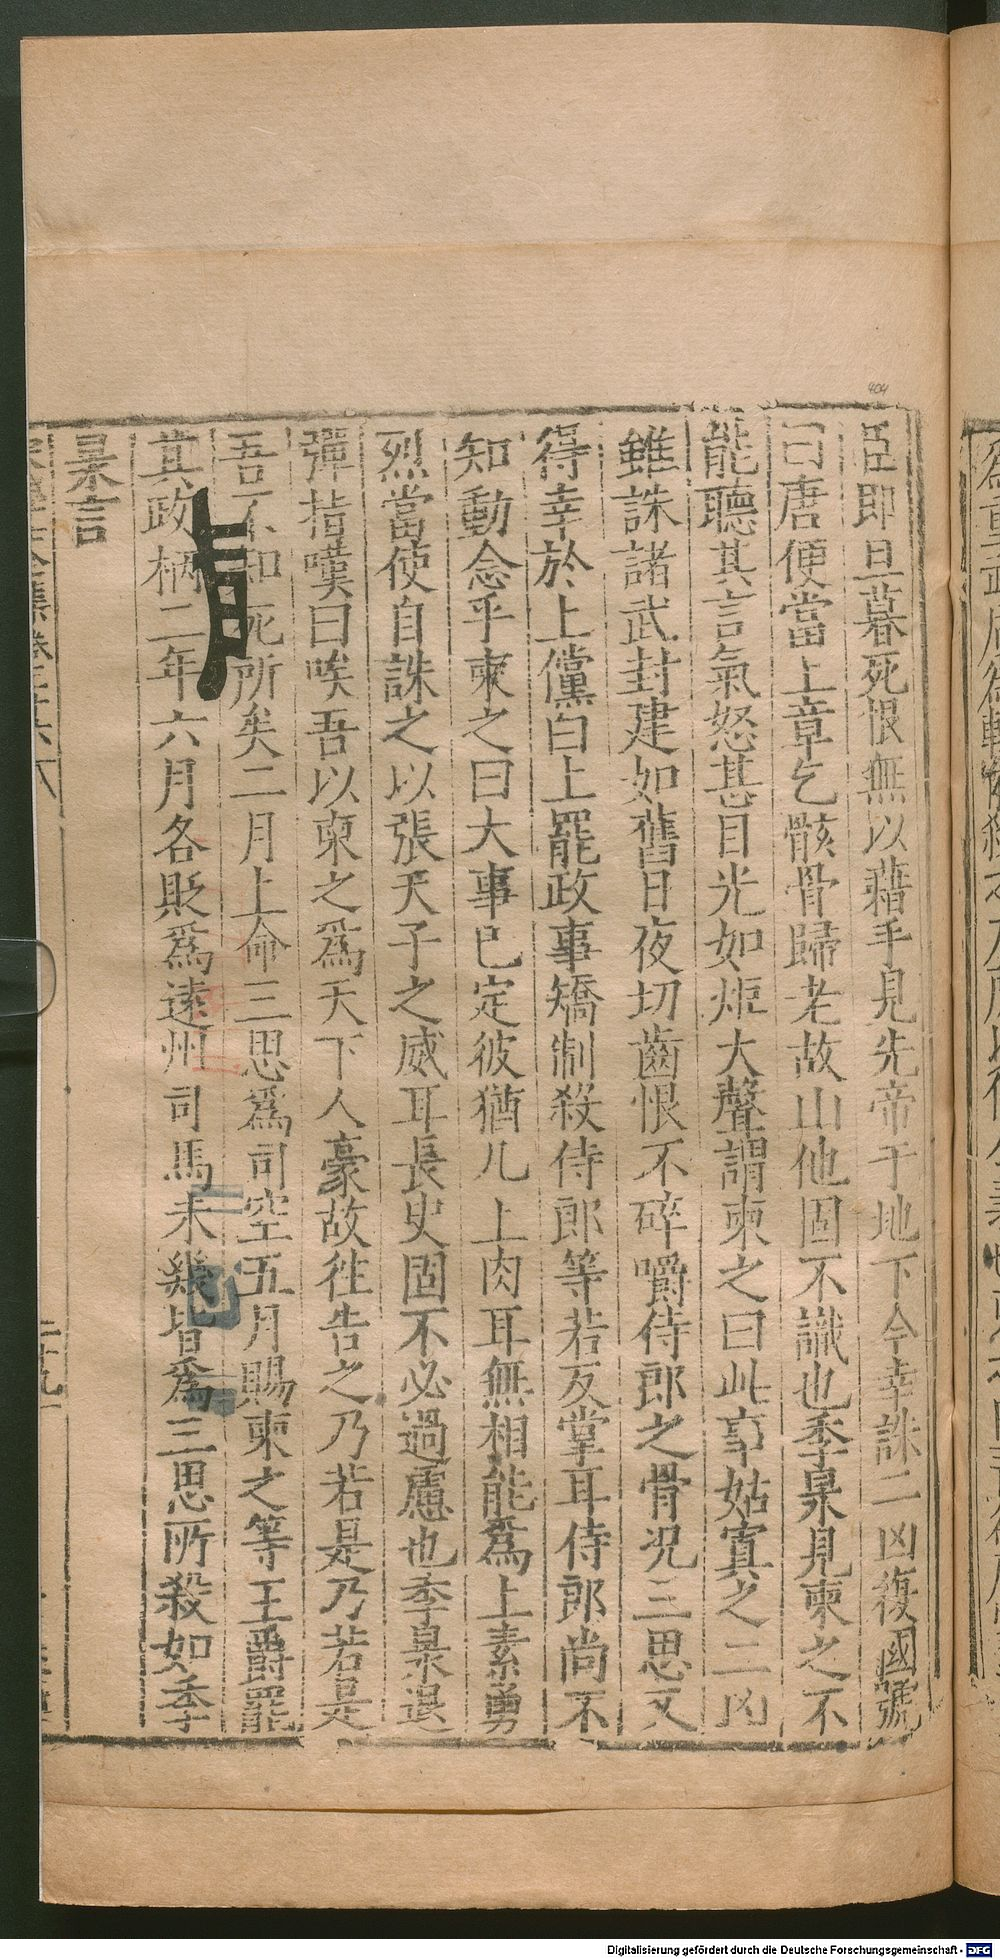 臣即旦暮死恨無以藉手見先帝于地下今幸誅二凶復國號
曰唐便當上章乞骸骨歸老故山他固不識也季杲見柬之不
能聽其言氣怒甚目光如炬大聲謂柬之曰此事姑寘之二凶
雖誅諸武封建如舊日夜切齒恨不碎嚼侍郎之骨况三思又
得幸於上儻白上罷政事矯制殺侍郎等若反掌耳侍郎尚不
知動念乎柬之曰大事已定彼猶几上肉耳無相能爲上素勇
烈當使自誅之以張天子之威耳長史固不必過慮也季杲退
彈指嘆曰唉吾以柬之爲天下人豪故往告之乃若是乃若是
吾不知死所矣二月上命三思爲司空五月賜柬之等王爵罷
其政柄二年六月各貶爲遠州司馬未幾皆爲三思所殺如季
杲言
二十九
404
Digitalisierung gefördert durch die Deutsche Forschungsgemeinschaft - DFG